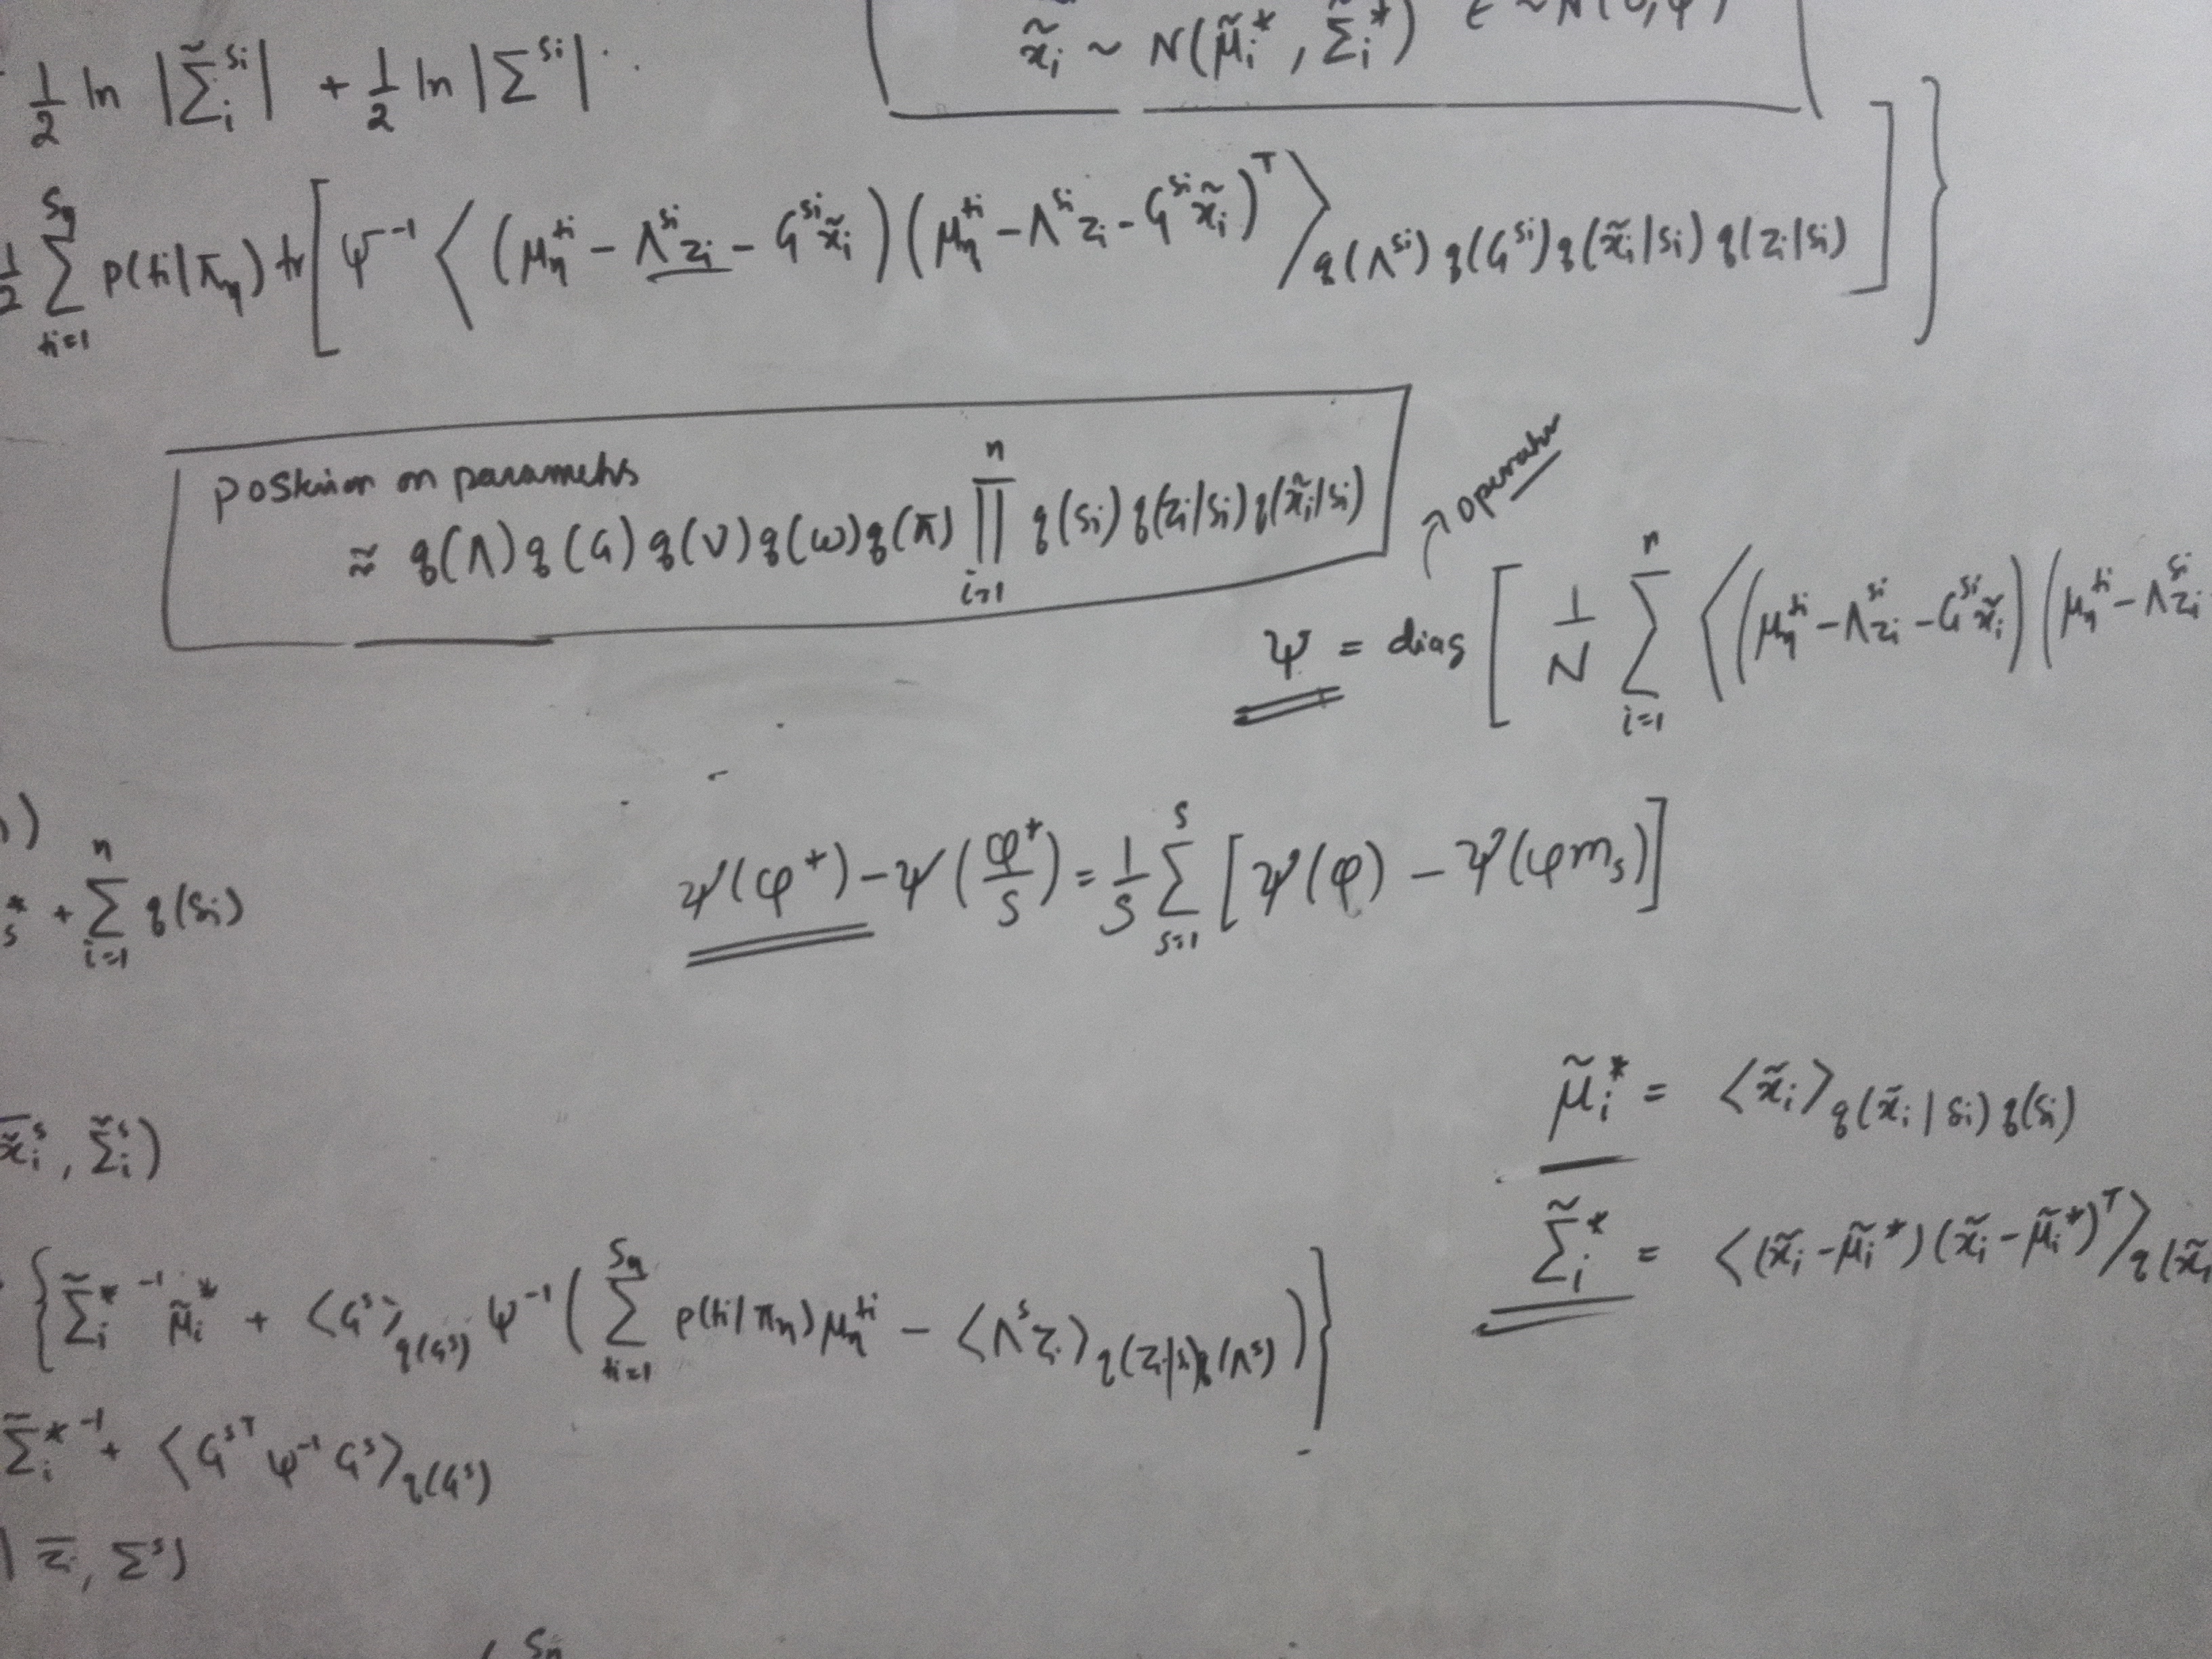 x̃ᵢ ~ N(μ̃ᵢ*, Σ̃ᵢ*) ε ~ N(0, Ψ)
½ ln |Σ̃ᵢ^{sᵢ}| + ½ ln |Σ^{sᵢ}|
½ Σ_{tᵢ=1}^{S_η} p(tᵢ|π_η) tr[Ψ⁻¹ ⟨(μ_η^{tᵢ} − Λ^{sᵢ}zᵢ − G^{sᵢ}x̃ᵢ)(μ_η^{tᵢ} − Λ^{sᵢ}zᵢ − G^{sᵢ}x̃ᵢ)^T⟩_{q(Λ^{sᵢ}) q(G^{sᵢ}) q(x̃ᵢ|sᵢ) q(zᵢ|sᵢ)}]}
posterior on parameters
≈ q(Λ) q(G) q(ν) q(ω) q(π) ∏_{i=1}^{n} q(sᵢ) q(zᵢ|sᵢ) q(x̃ᵢ|sᵢ)
operator
Ψ = diag [ 1/N Σ_{i=1}^{n} ⟨(μ_η^{tᵢ} − Λ^{sᵢ}zᵢ − G^{sᵢ}x̃ᵢ)(μ_η^{tᵢ} − Λ^{sᵢ}zᵢ
)
*_s + Σ_{i=1}^{n} q(sᵢ)
ψ(φ*) − ψ(φ*/S) = 1/S Σ_{s=1}^{S} [ψ(φ) − ψ(φm_s)]
μ̃ᵢ* = ⟨x̃ᵢ⟩_{q(x̃ᵢ|sᵢ) q(sᵢ)}
x̃ᵢˢ, Σ̃ᵢˢ)
Σ̃ᵢ* = ⟨(x̃ᵢ − μ̃ᵢ*)(x̃ᵢ − μ̃ᵢ*)^T⟩_{q(x̃ᵢ
{Σ̃ᵢ*⁻¹ μ̃ᵢ* + ⟨Gˢ⟩_{q(Gˢ)} Ψ⁻¹ (Σ_{tᵢ=1}^{S_η} p(tᵢ|π_η) μ_η^{tᵢ} − ⟨Λˢzᵢ⟩_{q(zᵢ|sᵢ) q(Λˢ)})}
Σ̃ᵢ*⁻¹ + ⟨G^{sT} Ψ⁻¹ Gˢ⟩_{q(Gˢ)}
| z̄ᵢ, Σˢ)
( S_η